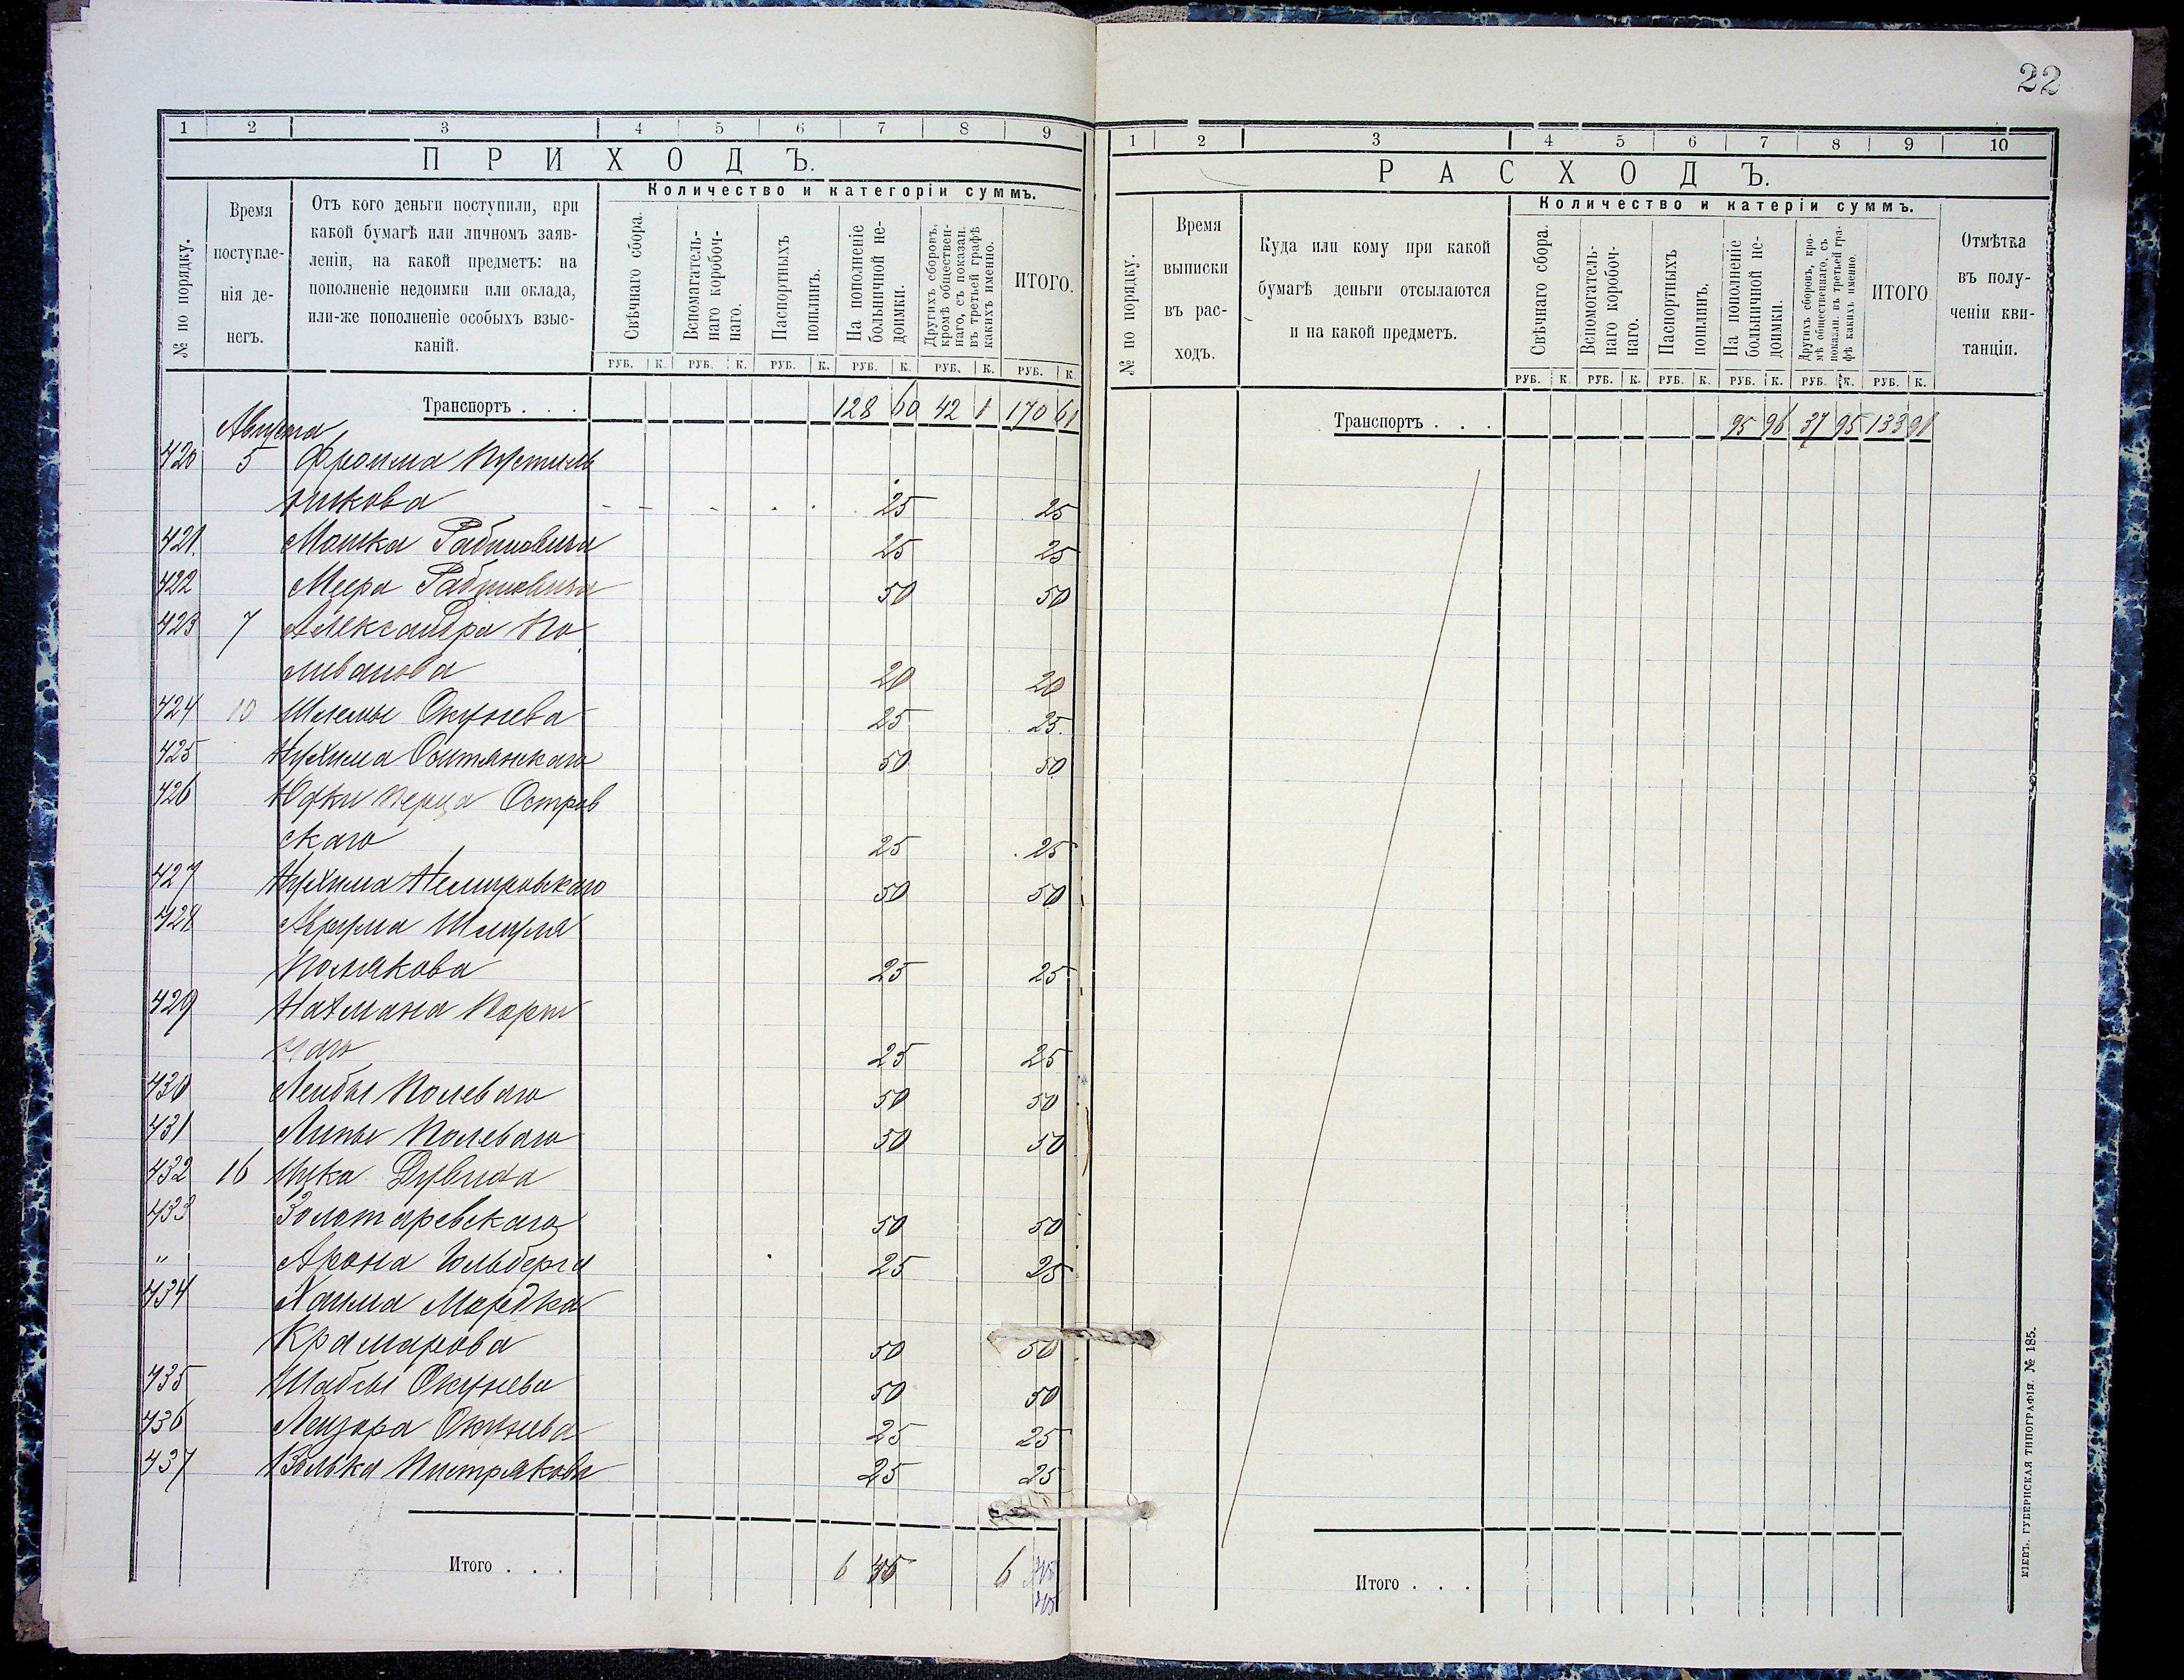 22
1 2 3 4 5 6 7 8 9
ПРИХОДЪ.
№ по порядку.
Время поступле-
нія де-
негъ.
Отъ кого деньги поступили, при
какой бумагѣ или личномъ заяв-
леніи, на какой предметъ: на
пополненіе недоимки или оклада,
или-же пополненіе особыхъ взыс-
каній.
Количество и категоріи суммъ.
Свѣчнаго сбора.
Вспомагатель-
наго коробоч-
наго.
Паспортныхъ
пошлинъ.
На пополненіе
больничной не-
доимки.
Другихъ сборовъ,
кромѣ обществен-
наго, съ показан.
въ третьей графѣ
какихъ именно.
ИТОГО.
РУБ. К. РУБ. К. РУБ. К. РУБ. К. РУБ. К. РУБ. К.
Транспортъ . . . 128 60 42 1 170 61
Августа
420 5 Фроима Пустиль
никова 25 25
421 Мошка Рабиновича 25 25
422 Меера Рабиновича 50 50
423 7 Александра По
ливанова 20 20
424 10 Шлемы Окунева 25 25
425 Нухима Охтянскаго 50 50
426 Юдки Перца Остров
скаго 25 25
427 Нухима Немировскаго 50 50
428 Аврума Шмуля
Полякова 25 25
429 Нахмана Порт
наго 25 25
430 Лейбы Полеваго 50 50
431 Липы Полеваго 50 50
432 16 Ицка Дувида
433 Золотаревскаго 50 50
" Арона Гольберга 25 25
434 Хаима Мордка
Крамарова 50 50
435 Шабсы Окунева 50 50
436 Лейзора Окунева 25 25
437 Волька Пистрякова 25 25
Итого . . . 6 45 6 45
45
1 2 3 4 5 6 7 8 9 10
РАСХОДЪ.
№ по порядку.
Время
выписки
въ рас-
ходъ.
Куда или кому при какой
бумагѣ деньги отсылаются
и на какой предметъ.
Количество и катеріи суммъ.
Свѣчнаго сбора.
Вспомогатель-
наго коробоч-
наго.
Паспортныхъ
пошлинъ.
На пополненіе
больничной не-
доимки.
Другихъ сборовъ, кро-
мѣ общественнаго, съ
показан. въ третьей гра-
фѣ какихъ именно.
ИТОГО
Отмѣтка
въ полу-
ченіи кви-
танціи.
РУБ. К. РУБ. К. РУБ. К. РУБ. К. РУБ. К. РУБ. К.
Транспортъ . . . 95 96 37 95 133 91
Итого . . .
КІЕВЪ. ГУБЕРНСКАЯ ТИПОГРАФІЯ. № 185.